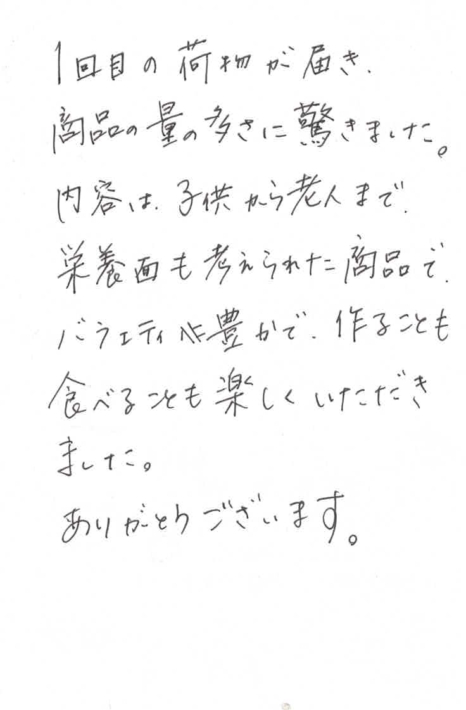 1回目の荷物が届き、
商品の量の多さに驚きました。
内容は、子供から老人まで、
栄養面も考えられた商品で、
バラエティに豊かで、作ることも
食べることも楽しくいただき
ました。
ありがとうございます。